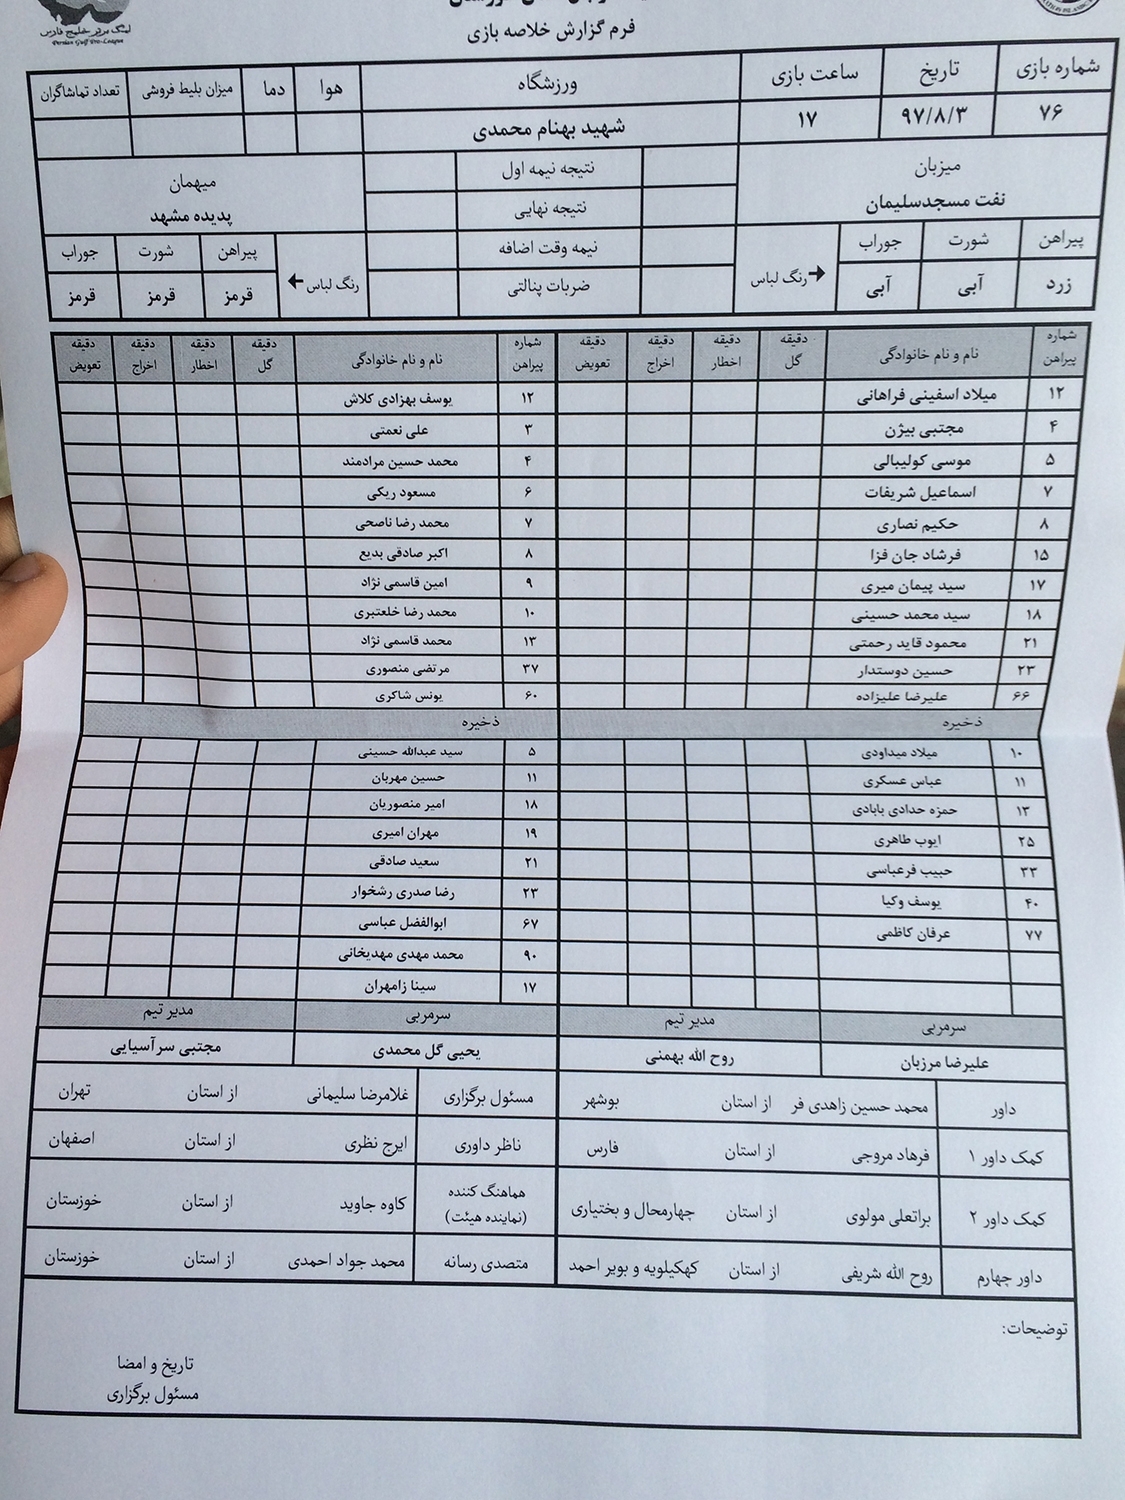 لیگ برتر خلیج فارس
Persian Gulf Pro-League
فرم گزارش خلاصه بازی
شماره بازی تاریخ ساعت بازی ورزشگاه هوا دما میزان بلیط فروشی تعداد تماشاگران
۷۶ ۹۷/۸/۳ ۱۷ شهید بهنام محمدی
میزبان نتیجه نیمه اول میهمان
نفت مسجدسلیمان نتیجه نهایی پدیده مشهد
پیراهن شورت جوراب رنگ لباس نیمه وقت اضافه رنگ لباس پیراهن شورت جوراب
زرد آبی آبی ضربات پنالتی قرمز قرمز قرمز
شماره پیراهن نام و نام خانوادگی دقیقه گل دقیقه اخطار دقیقه اخراج دقیقه تعویض شماره پیراهن نام و نام خانوادگی دقیقه گل دقیقه اخطار دقیقه اخراج دقیقه تعویض
۱۲ میلاد اسفینی فراهانی ۱۲ یوسف بهزادی کلاش
۴ مجتبی بیژن ۳ علی نعمتی
۵ موسی کولیبالی ۴ محمد حسین مرادمند
۷ اسماعیل شریفات ۶ مسعود ریکی
۸ حکیم نصاری ۷ محمد رضا ناصحی
۱۵ فرشاد جان فزا ۸ اکبر صادقی بدیع
۱۷ سید پیمان میری ۹ امین قاسمی نژاد
۱۸ سید محمد حسینی ۱۰ محمد رضا خلعتبری
۲۱ محمود قاید رحمتی ۱۳ محمد قاسمی نژاد
۲۳ حسین دوستدار ۳۷ مرتضی منصوری
۶۶ علیرضا علیزاده ۶۰ یونس شاکری
ذخیره ذخیره
۱۰ میلاد میداودی ۵ سید عبدالله حسینی
۱۱ عباس عسکری ۱۱ حسین مهربان
۱۳ حمزه حدادی بابادی ۱۸ امیر منصوریان
۲۵ ایوب طاهری ۱۹ مهران امیری
۳۳ حبیب فرعباسی ۲۱ سعید صادقی
۴۰ یوسف وکیا ۲۳ رضا صدری رشخوار
۷۷ عرفان کاظمی ۶۷ ابوالفضل عباسی
۹۰ محمد مهدی مهدیخانی
۱۷ سینا زامهران
سرمربی مدیر تیم سرمربی مدیر تیم
علیرضا مرزبان روح الله بهمنی یحیی گل محمدی مجتبی سرآسیایی
داور محمد حسین زاهدی فر از استان بوشهر مسئول برگزاری غلامرضا سلیمانی از استان تهران
کمک داور ۱ فرهاد مروجی از استان فارس ناظر داوری ایرج نظری از استان اصفهان
کمک داور ۲ براتعلی مولوی از استان چهارمحال و بختیاری هماهنگ کننده (نماینده هیئت) کاوه جاوید از استان خوزستان
داور چهارم روح الله شریفی از استان کهکیلویه و بویر احمد متصدی رسانه محمد جواد احمدی از استان خوزستان
توضیحات:
تاریخ و امضا
مسئول برگزاری